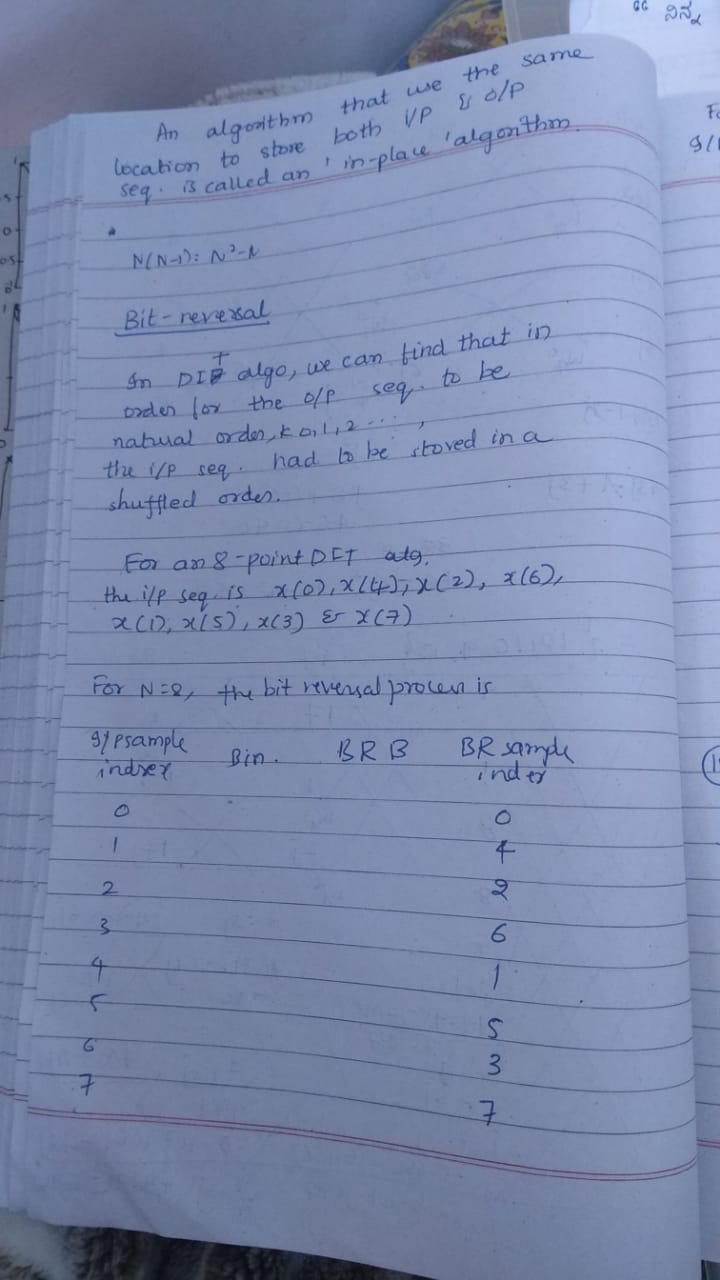 An algorithm that use the same
location to store both I/P & O/P
seq. is called an 'in-place' algorithm.
N(N-1) = N²-N
Bit-reversal
In DIT algo, we can find that in
order for the o/p seq. to be
natural order, k 0, 1, 2 ... ,
the i/p seq. had to be stored in a
shuffled order.
For an 8-point DFT alg.
the i/p seq. is x(0), x(4), x(2), x(6),
x(1), x(5), x(3) & x(7)
For N=8, the bit reversal process is
I/P sample Bin. BRB BR sample
index index
0 0
1 4
2 2
3 6
4 1
5 5
6 3
7 7
“ ನಿನ್ನ